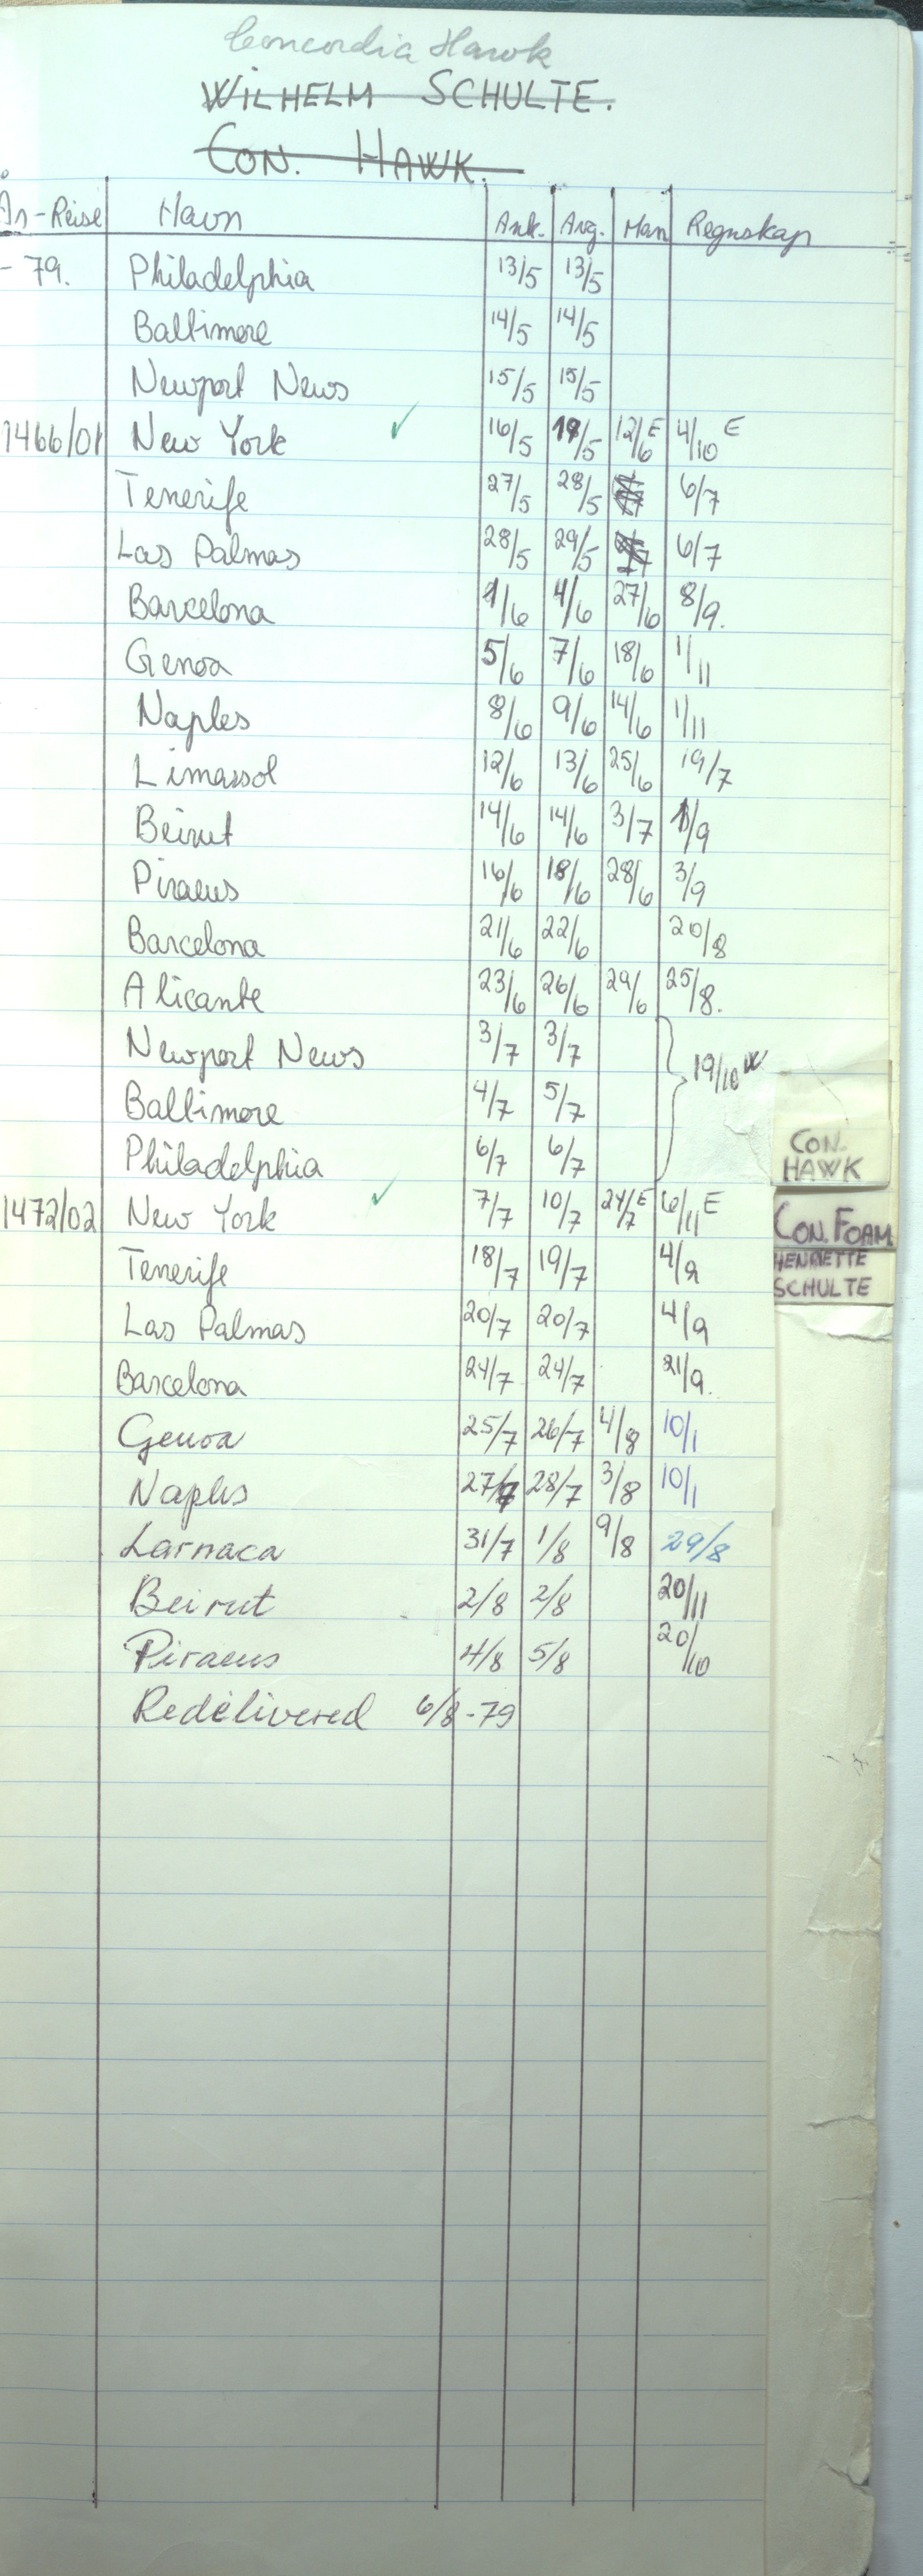 Concordia Hawk
WILHELM SCHULTE.
CON. HAWK.
År-Reise Havn Ank. Avg. Man Regnskap
- 79. Philadelphia 13/5 13/5
Baltimore 14/5 14/5
Newport News 15/5 15/5
1466/01 New York ✓ 16/5 19/5 12/6 E 4/10 E
Tenerife 27/5 28/5 6/7
Las Palmas 28/5 29/5 6/7
Barcelona 1/6 4/6 27/6 8/9.
Genoa 5/6 7/6 18/6 1/11
Naples 8/6 9/6 14/6 1/11
Limassol 12/6 13/6 25/6 19/7
Beirut 14/6 14/6 3/7 1/9
Piraeus 16/6 18/6 28/6 3/9
Barcelona 21/6 22/6 20/8
Alicante 23/6 26/6 29/6 25/8.
Newport News 3/7 3/7
19/10
Baltimore 4/7 5/7
Philadelphia 6/7 6/7
New York ✓ 7/7 10/7 24/7 E 6/11 E
1472/02
Tenerife 18/7 19/7 4/9
Las Palmas 20/7 20/7 4/9
Barcelona 24/7 24/7 21/9.
Genoa 25/7 26/7 4/8 10/1
Naples 27/7 28/7 3/8 10/1
Larnaca 31/7 1/8 9/8 29/8
Beirut 2/8 2/8 20/11
Piraeus 4/8 5/8 20/10
Redelivered 6/8-79
CON.
HAWK
CON. FOAM
HENRIETTE
SCHULTE